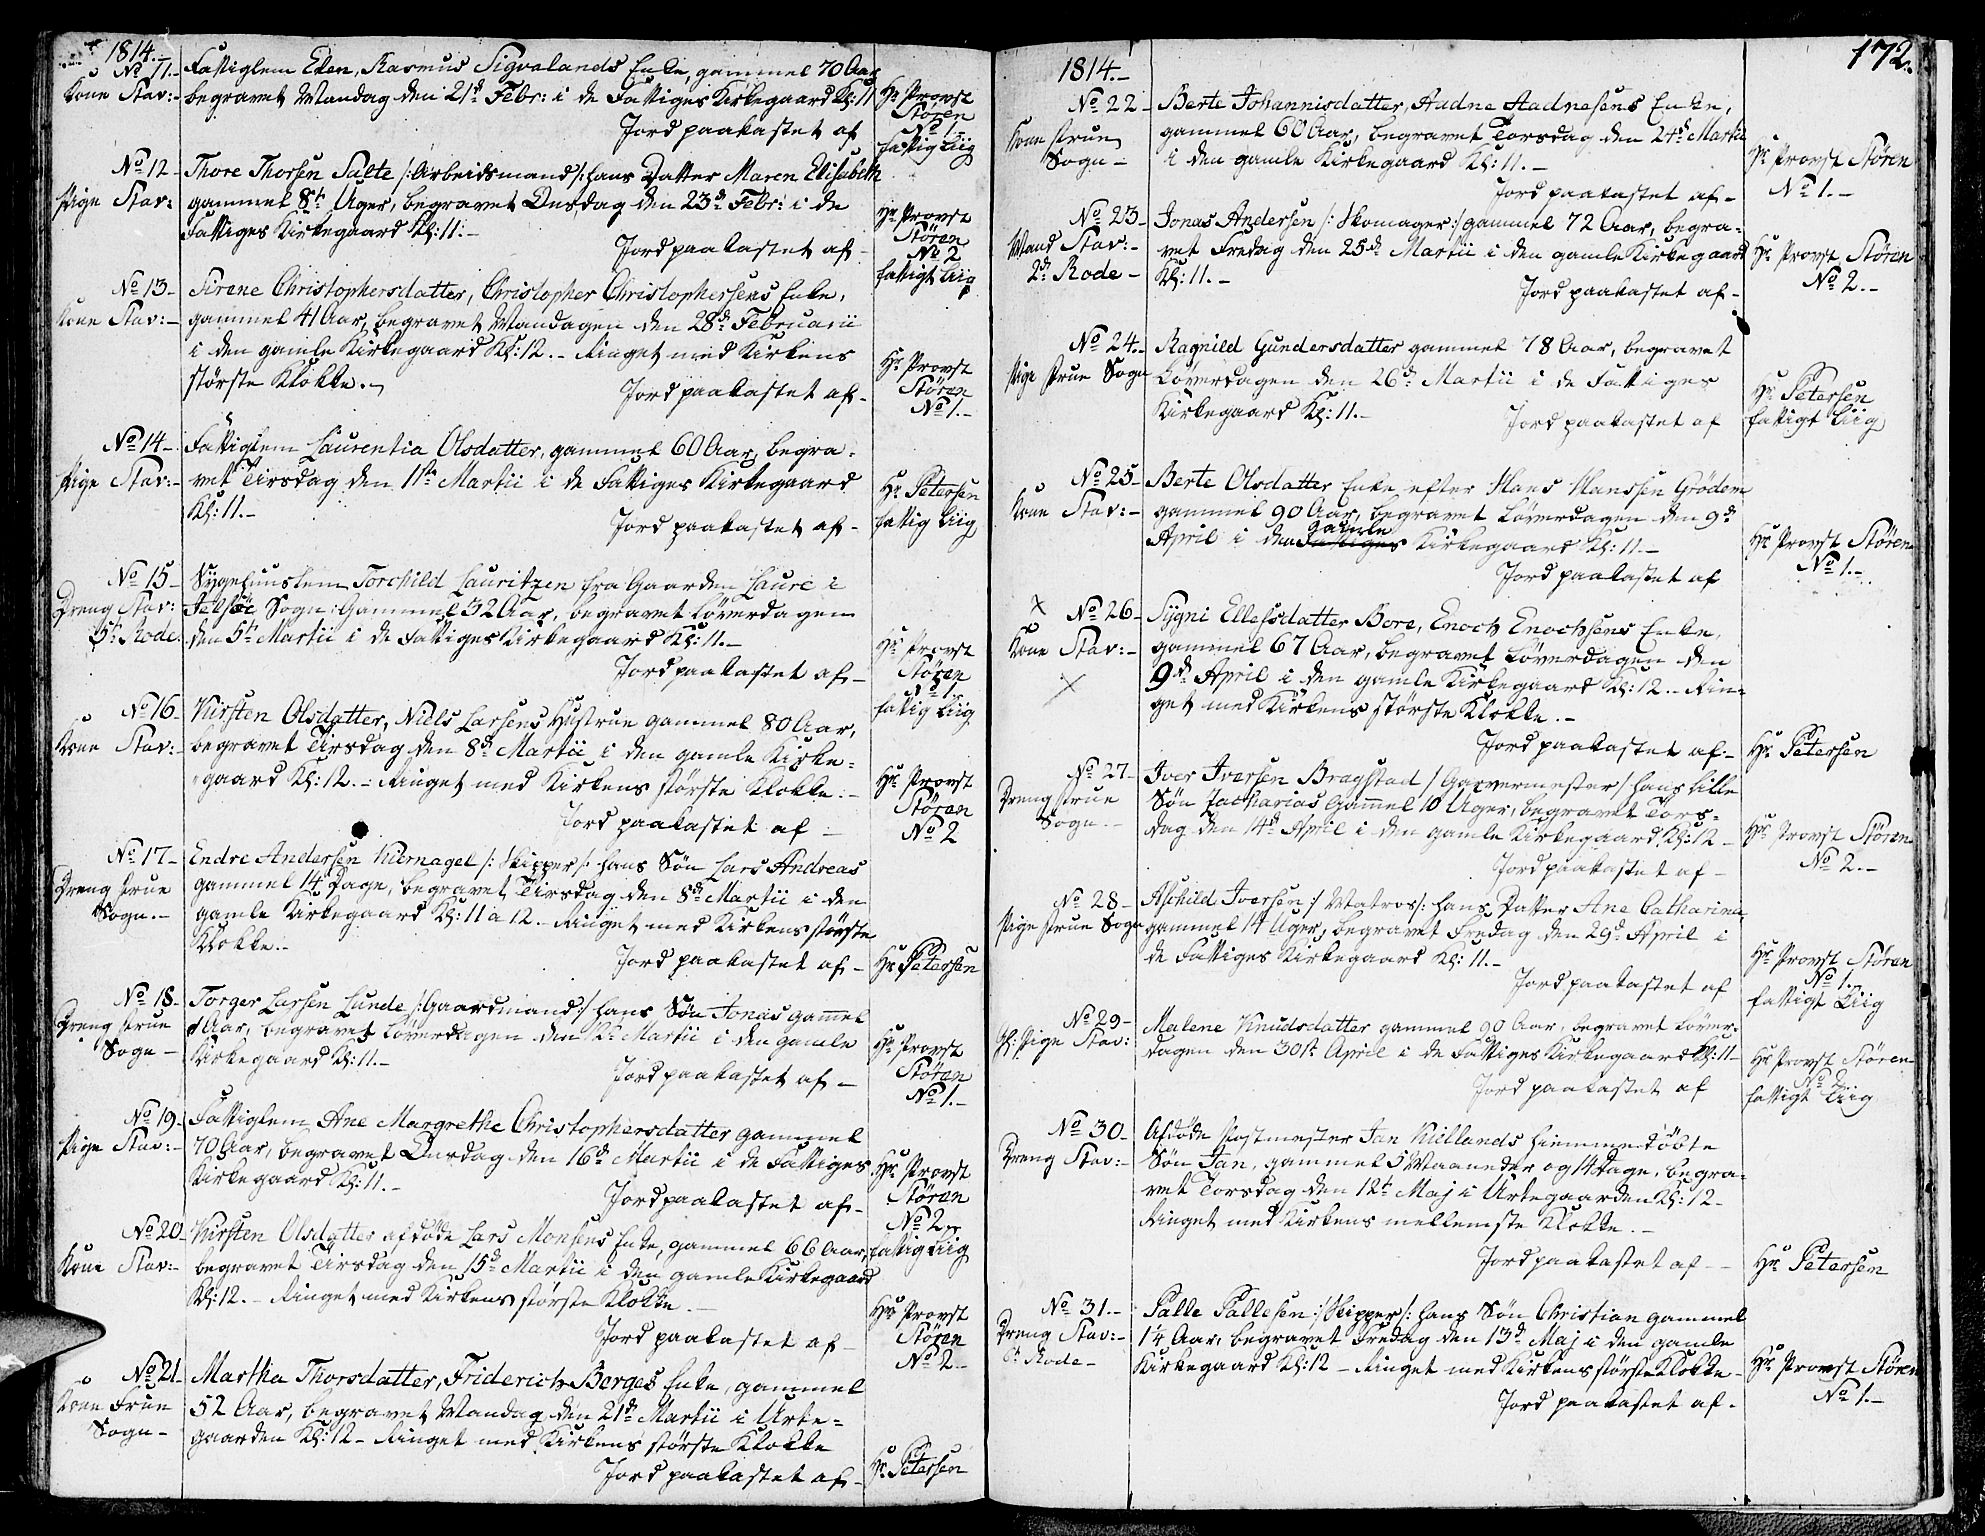 1814.-
No 11.- Fattiglem Elen, Rasmus Sigvalands Enke, gammel 70 Aar
Kone Stav:- begravet Mandag den 21de Febr: i de Fattiges Kirkegaard Kl: 11
Jord paakastet af
Hr Provst
Støren
No 1.
fattig Liig
No 12- Thore Thorsen Salte /: Arbeidsmand :/ hans Datter Maren Elisabeth
Pige Stav: gammel 8te Uger, begravet Onsdag den 23de Febr: i de
Fattiges Kirkegaard Kl: 11.-
Jord paakastet af-
Hr Provst
Støren
No 2
fattigt Liig
No 13- Sirene Christophersdatter, Christopher Christophersens Enke,
Kone Stav:- gammel 41 Aar, begravet Mandagen den 28de Februarii
i den gamle Kirkegaard Kl: 12.- Ringet med Kirkens
største Klokke.-
Jord paakastet af-
Hr Provst
Støren
No 1.-
No 14- Fattiglem Laurentia Olsdatter, gammel 60 Aar, begra-
Pige Stav:- vet Tirsdag den 1ste Martii i de Fattiges Kirkegaard
Kl: 11.-
Jord paakastet af-
Hr Petersen
fattig Liig
No 15- Sygehuuslem Torchild Lauritzen fra Gaarden Laure i
Dreng Stav: Jelsöe Sogn: Gammel 32 Aar, begravet Løverdagen
5te Rode. den 5te Martii i de Fattiges Kirkegaard Kl: 11.-
Jord paakastet af-
Hr Provst
Støren
No 1.
fattig Liig
No 16- Kirsten Olsdatter, Niels Larsens Hustrue gammel 80 Aar,
Kone Stav:- begravet Tirsdag den 8de Martii i den gamle Kirke-
gaard Kl: 12.- Ringet med Kirkens største Klokke.-
Jord paakastet af
Hr Provst
Støren
No 2
No 17- Endre Andersen Kiernagel /: Skipper /: hans Søn Lars Andreas
Dreng Frue gammel 14 Dage, begravet Tirsdag den 8de Martii i den
Sogn.- gamle Kirkegaard Kl: 11 a 12.- Ringet med Kirkens største
Klokke.-
Jord paakastet af- Hr Petersen
No 18- Torger Larsen Lunde /: Gaardmand :/ hans Søn Jonas gamel
Dreng Frue Aar, begravet Løverdagen den 12te Martii i den gamle
Sogn- Kirkegaard Kl: 11.-
Jord paakastet af-
Hr Provst
Støren
No 1.-
No 19- Fattiglem Ane Margrethe Christophersdatter gammel
Pige Stav:- 70 Aar, begravet Onsdag den 16de Martii i de Fattiges
Kirkegaard Kl: 11.-
Jord paakastet af-
Hr Provst
Støren
No 2
fattig Liig
No 20 Kirsten Olsdatter afdøde Lars Monsens Enke, gammel 66 Aar,
Kone Stav:- begravet Tirsdag den 15de Martii i den gamle Kirkegaard
Kl: 12.- Ringet med Kirkens største Klokke.-
Jord paakastet af-
Hr Provst
Støren
No 2-
No 21- Martha Thorsdatter, Friderich Berges Enke, gammel
Kone Frue 52 Aar, begravet Mandag den 21de Martii i Urte-
Sogn- gaarden Kl: 12- Ringet med Kirkens største Klokke
Jord paakastet af- Hr Petersen
172.
1814.-
No 22- Berte Johannisdatter, Aadne Aadnesens Enke,
Kone Frue gammel 60 Aar, begravet Torsdag den 24de Martii
Sogn- i den gamle Kirkegaard Kl: 11.-
Jord paakastet af-
Hr Provst Støren
No 1.-
No 23- Jonas Andersen /: Skomager :/ gammel 72 Aar, begra-
Mand Stav:- vet Fredag den 25de Martii i den gamle Kirkegaard
2de Rode- Kl: 11.-
Jord paakastet af-
Hr Provst Støren
No 2.-
No 24.- Ragnild Gundersdatter gammel 78 Aar, begravet
Pige Frue Sogn Løverdagen den 26de Martii i de Fattiges
Kirkegaard Kl: 11.-
Jord paakastet af
Hr Petersen
fattigt Liig
No 25- Berte Olsdatter Enke efter Hans Hanssen Grödem
Kone Stav:- gammel 90 Aar, begravet Løverdagen den 9de
gamle
April i den Fattiges Kirkegaard Kl: 11.-
Jord paakastet af
Hr Provst Støren
No 1.-
x No 26- Sygni Ellefsdatter Bore, Enoch Enochsens Enke,
Kone Stav:- gammel 67 Aar, begravet Løverdagen den
x 9de April i den gamle Kirkegaard Kl: 12.- Rin-
get med Kirkens største Klokke.-
Jord paakastet af- Hr Petersen
No 27- Iver Iversen Bragstad / Garvermester / hans lille
Dreng Frue Søn Zacharias Gamel 10 Uger, begravet Tors-
Sogn.- dag den 14de April i den gamle Kirkegaard Kl: 12-
Jord paakastet af-
Hr Provst Støren
No 2.-
No 28- Aschild Iversen :/ Matros /: hans Datter Ane Catharina
Pige Frue Sogn gammel 14 Uger, begravet Fredag den 29de April i
de Fattiges Kirkegaard Kl: 11.-
Jord paakastet af
Hr Provst Støren
No 1.-
fattigt Liig
No 29- Malene Knudsdatter gammel 90 Aar, begravet Løver-
Pige Stav: dagen den 30te April i de Fattiges Kirkegaard Kl: 11-
Jord paakastet af
Hr Provst Støren
No 2
fattigt Liig
No 30- Afdøde Postmester Jan Kiellands hiemmedöbte
Dreng Stav:- Søn Jan, gammel 5 Maaneder og 14 Dage, begra-
vet Torsdag den 12te Maj i Urtegaarden Kl: 12-
Ringet med Kirkens mellemste Klokke.-
Jord paakastet af- Hr Petersen
No 31.- Palle Pallesen :/ Skipper /: hans Søn Christian gammel
Dreng Stav:- 1¼ Aar, begravet Fredag den 13de Maj i den gamle
6te Rode- Kirkegaard Kl: 12- Ringet med Kirkens største Klokke-
Jord paakastet af-
Hr Provst Støren
No 1.-